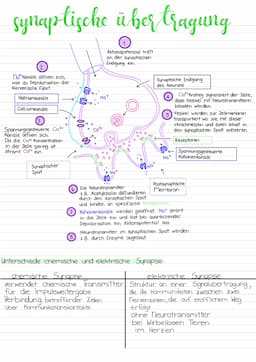 synaptische übertragung
1
Aktionspotenzial trifft
an der synaptischen
Endigung ein.
2
Na⁺ Kanäle öffnen sich,
was zu Depolarisation der
Membran führt
Natriumkanäle
Calciumkanäle
3
Spannungsgesteuerte Ca²⁺
Kanäle öffnen sich.
Da die Ca²⁺ Konzentration
in der Zelle gering ist
strömt Ca²⁺ ein.
Synaptischer
Spalt
Synaptische Endigung
des Neurons
4
Ca²⁺ Anstieg signalisiert der Zelle,
dass Vesikel mit Neurotransmittern
beladen werden.
5
Vesikel werden zur
Transportiert wo sie mit dieser
verschmelzen und ihren Inhalt an
den synaptischen Spalt entleeren.
Rezeptoren
Spannungsgesteuerte
Kationenkanäle
Postsynaptische
Membran
6
Die Neurotransmitter
z.B. Acetylcholin diffundieren
durch den synaptischen Spalt
und binden an spezifische
7
Kationenkanäle werden geöffnet Na⁺ strömt
in die Zelle ein und löst bei ausreichender
Depolarisation ein Aktionspotential aus.
8
Neurotransmitter im synaptischen Spalt werden
z.B. durch Enzyme abgebaut
Unterschiede chemische und elektrische Synapse
chemische Synapse
verwendet chemische Transmitter
für die Impulsweitergabe
Verbindung betreffender Zellen
über Kommunikationskontakte
elektrische Synapse
Struktur an einer Signalübertragung,
die die Kommunikation zwischen zwei
Nervenzellen, die auf stofflichem Weg
erfolgt
ohne Neurotransmitter
bei Wirbellosen Tieren
im Herzen